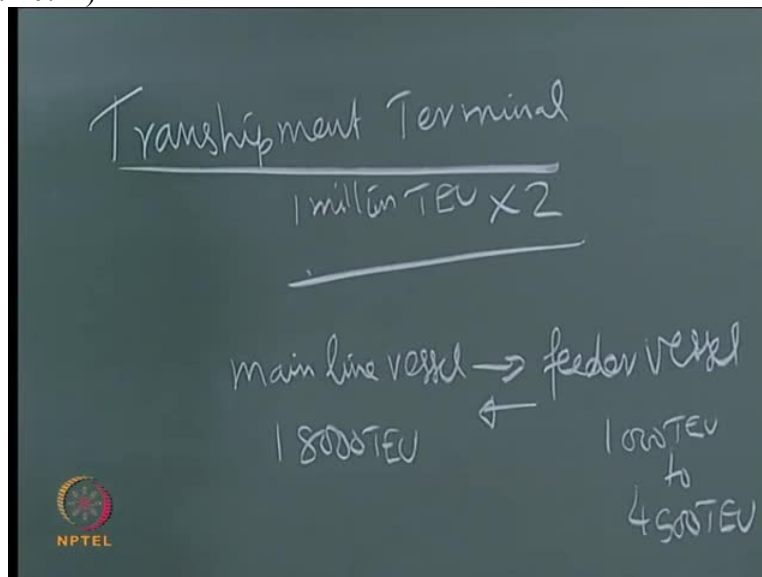 Transhipment Terminal
1 million TEU X 2
main line vessel → feeder vessel
←
18000 TEU 1000 TEU
to
4500 TEU
NPTEL